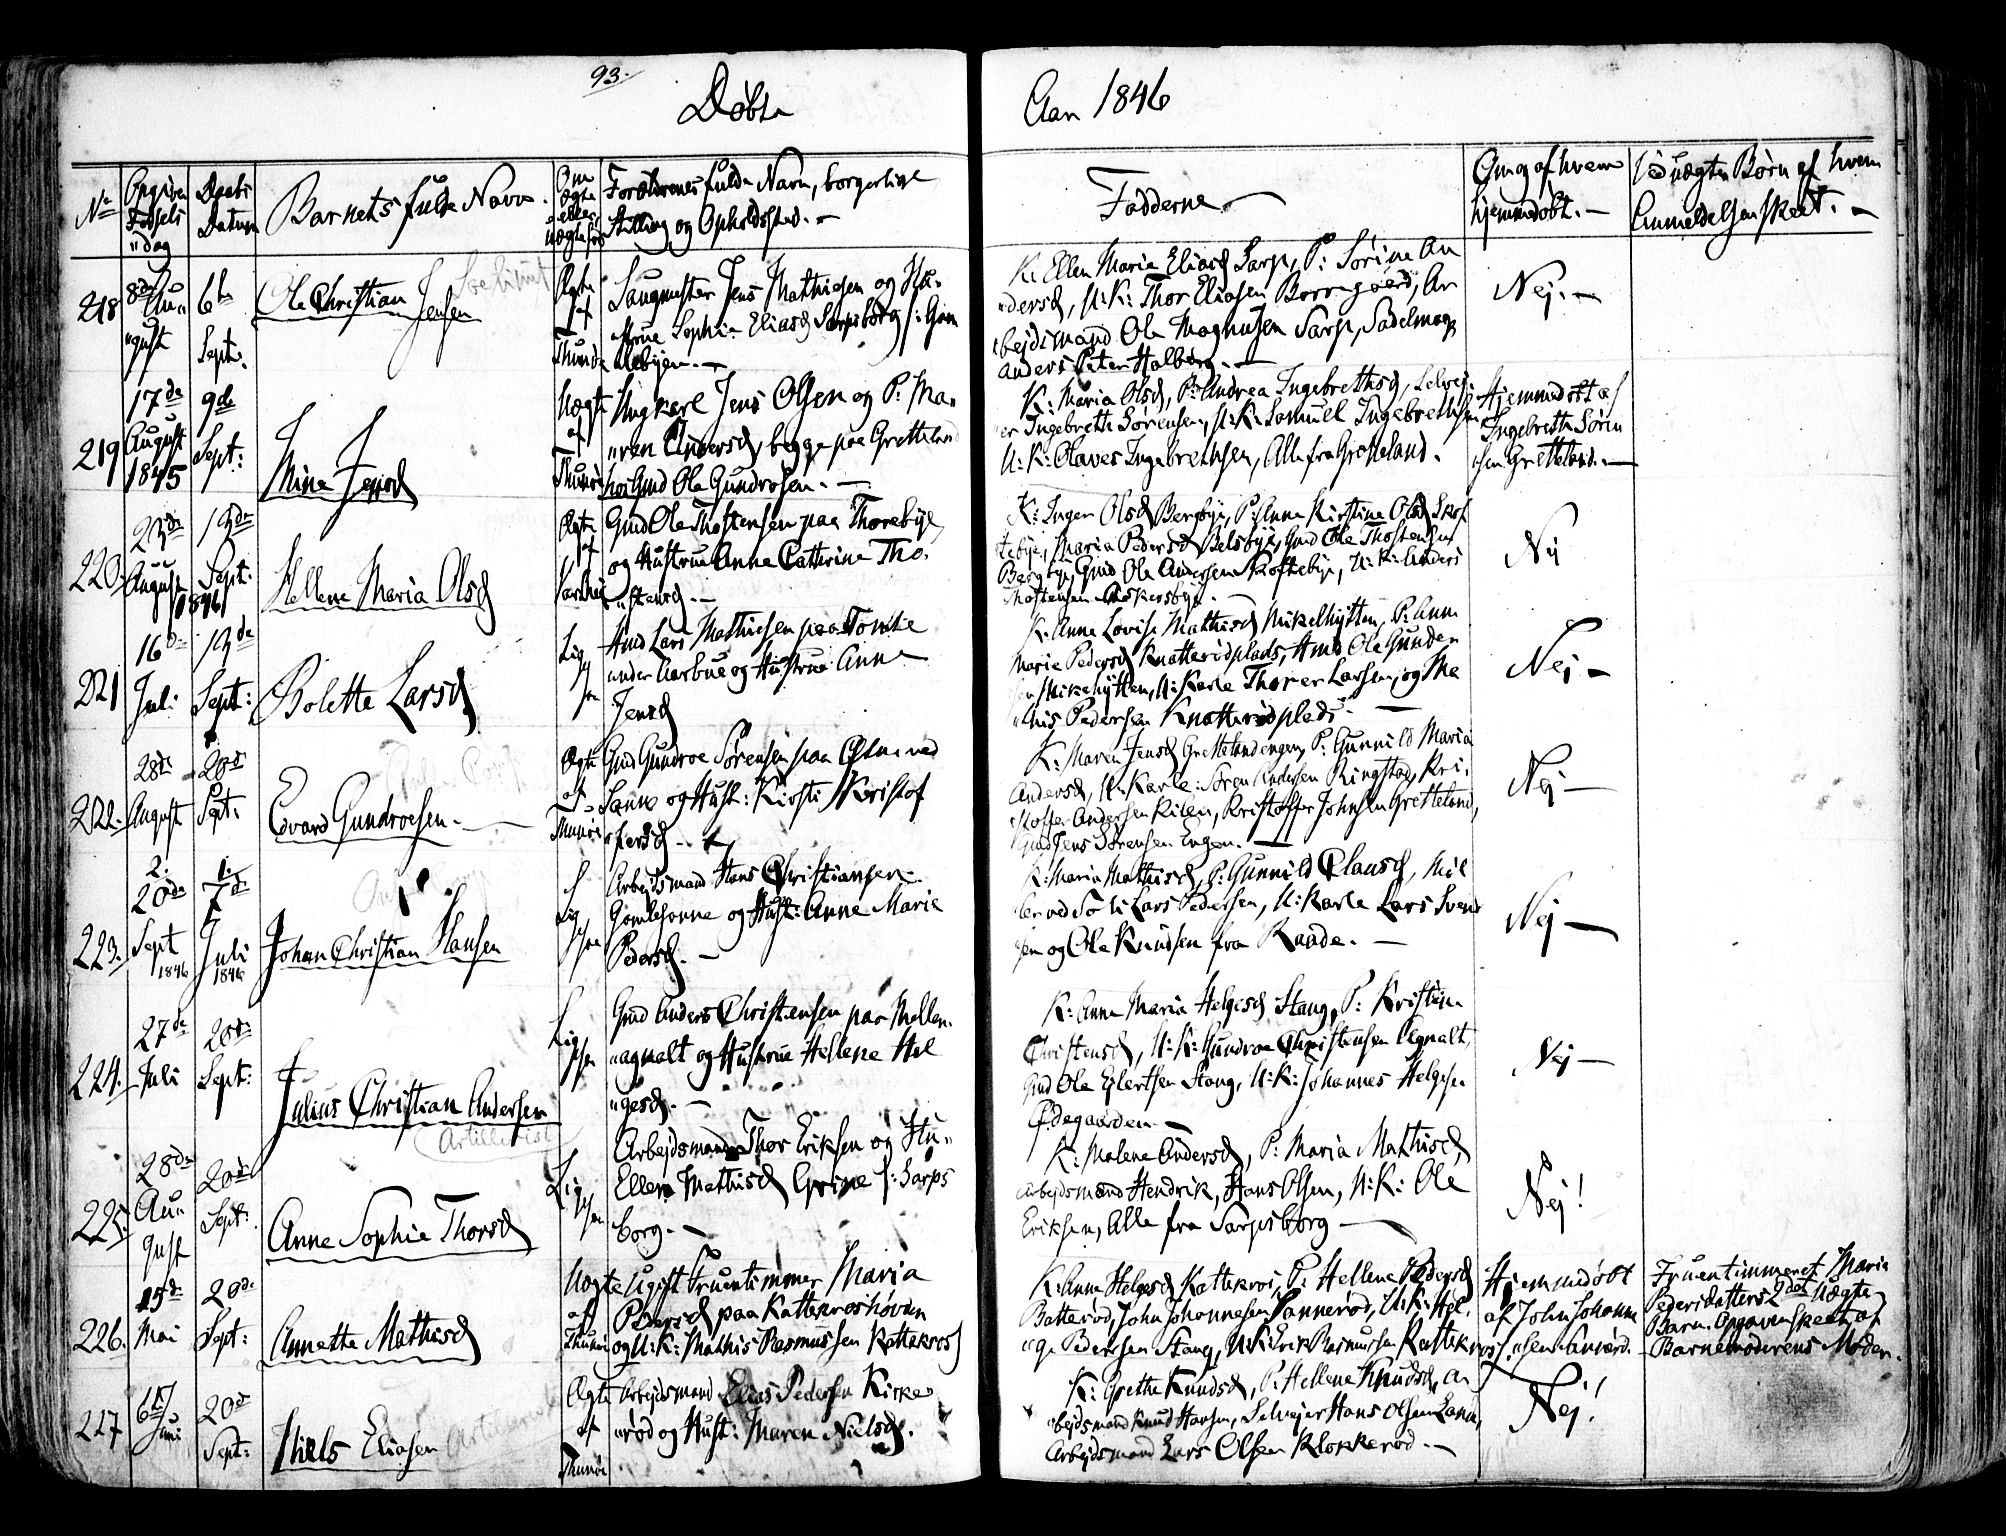 93.
Døbte
Aar 1846
No
Opgiven
Fødsels
"dag
Daabs
Datum
Barnets fulde Navn.
Om
ægte
eller
uægte
Forældrenes fulde Navn, borgerlige
Stilling og Opholdssted. -
Fadderne -
Om og af hvem
hjemmedøbt. -
Ved uægte Børn af hvem
Anmeldelsen skeet. -
218
8de
Au"
"gust
6te
Sept.
Ole Christian
Jensen
Ægte
af
Thunøe
Saugmester Jens Mathiesen og Hu"
"strue Sophie Eliasd Sarpsborg /: Gam
lebyen. -
K: Ellen Maria Eliasd Sarp, P: Sørine An
"dersd, U: K: Thor Eliasen Borregaard, Ar
bejdsmand Ole Magnusen Sarp, Sadelmag.
Anders Peter Halberg. -
Nej. -
219
17de
August
1845
9de
Sept:
Mine Jensd
Uægte
af
Thunøe
Ungkarl Jens Olsen og P: Ma"
"ren Andersd, begge paa Gretteland
hos Gmd Ole Gundrosen. -
K: Maria Olsd, P: Andrea Ingebrethsd, Selvej"
er Ingebreth Sørensen, U: K: Samuel Ingebrethsen
U: K: Olaves Ingebrethsen, Alle fra Gretteland.
Hjemmedøbt af
Ingebreth Søren
sen Gretteland. -
220.
23de
August
1846
13de
Sept:
Hellene Maria Olsd
Ægte
af
Gmd Ole Thostensen paa Thorebye
og Hustrue Anne Cathrine Tho.
"stensd. -
K: Inger Olsd Bergbye, P: Anne Kirstine Olsd Skof
tebye, Maria Pedersd Belsbye, Gmd Ole Thostensen
Bergbye, Gmd Ole Andersen Skoftebye, U: K: Anders
Thostensen Askersbye. -
Nej
221
16de
Juli
13de
Sept:
Bolette Larsd
Lig
sen
Hmd Lars Mathiesen paa Tomte
under Aarbue og Hustrue Anne
Jensd
K: Anne Lovise Mathisd Mikelhytten, P: Anne
Marie Pedersd Knatterødplads, Hmd Ole Gunder
sen Mikelhytten, U: Karle Thorer Larsen, og Ma
"this Pedersen Knatterødplads. -
Nej -
222.
28de
August
20de
Sept:
Edvard Gundroesen. -
Ægte
af
Thunøe
Gmd Gundroe Sørensen paa Ølme ved
Sanne og Hust: Kirsti Kristof
"fersd. -
K: Maren Jensd Grettelandengen, P: Gunnild Maria
Andersd, U: Karle: Søren Andersen Ringstad, Kri.
stoffer Andersen Kilen, Kristoffer Johnsen Gretteland,
Gmd Jens Sørensen Engen. -
Nej -
223.
2.
20de
Sept
1846
1.
7de
Juli
1846
Johan Christian Hansen
Lig
sen
Arbejdsmand Hans Christiansen
Gjemlesonne og Hust: Anne Marie
Pedersd. -
K: Maria Mathisd, P: Gunnild Clausd, Møl
ler ved Soli Lars Pedersen, U: Karle Lars Svend
sen og Ole Knudsen fra Raade. -
Nej -
224.
27de
Juli
20de
Sept:
Julius Christian Andersen
Artillerist
Lig
sen
Gmd Anders Christensen paa Mellem
"agnalt og Hustrue Hellene Hel
"gesd. -
K: Anne Maria Helgesd Stang, P: Kristine
Christensd, U: K: Gundroe Christensen Agnalt,
Gmd Ole Ejlertsen Stang, U: K: Johannes Helgesen
Ødegaarden. -
Nej -
225.
28de
Au"
gust
20de
Sept:
Anne Sophie Thorsd
Lig
sen
Arbejdsmand Thor Eriksen og Hu"
Ellen Mathisd Grine /: Sarps
borg. -
K: Malene Andersd, P: Maria Mathisd,
Arbejdsmand Hendrik, Hans Olsen, U: K: Ole
Eriksen, Alle fra Sarpsborg -
Nej!
226.
25de
Mai
20de
Sept:
Annette Mathisd
Uægte
af
Thunøe
Ugift Fruentimmer Maria
Pedersd paa Katterøshøven
og U: K: Mathis Rasmussen Katterøs
K: Anne Helgesd Katterøs, P: Hellene Pedersd
Batterød, John Johannesen Sannerød, U: K: Hel.
"ge Pedersen Stang, U: K: Erik Rasmussen Katterøs
Hjemmedøbt
af John Johanne
"sen Sannerød. -
Fruentimmeret Maria
Pedersdatters 2det Uægte
Barn. Opgaven skeet af
Barnemoderens Moder.
227
6te
Juni
20de
Sept:
Niels Eliasen
Ægte
af
Thunøe
Arbejdsmand Elias Pedersen Kirke"
"rød og Hust: Maren Nielsd.
K: Grethe Knudsd, P: Hellene Knudsd, Ar
"bejdsmand Knud Hansen, Selvejer Hans Olsen Lann,
Arbejdsmand Lars Olsen Klokkerød. -
Nej!